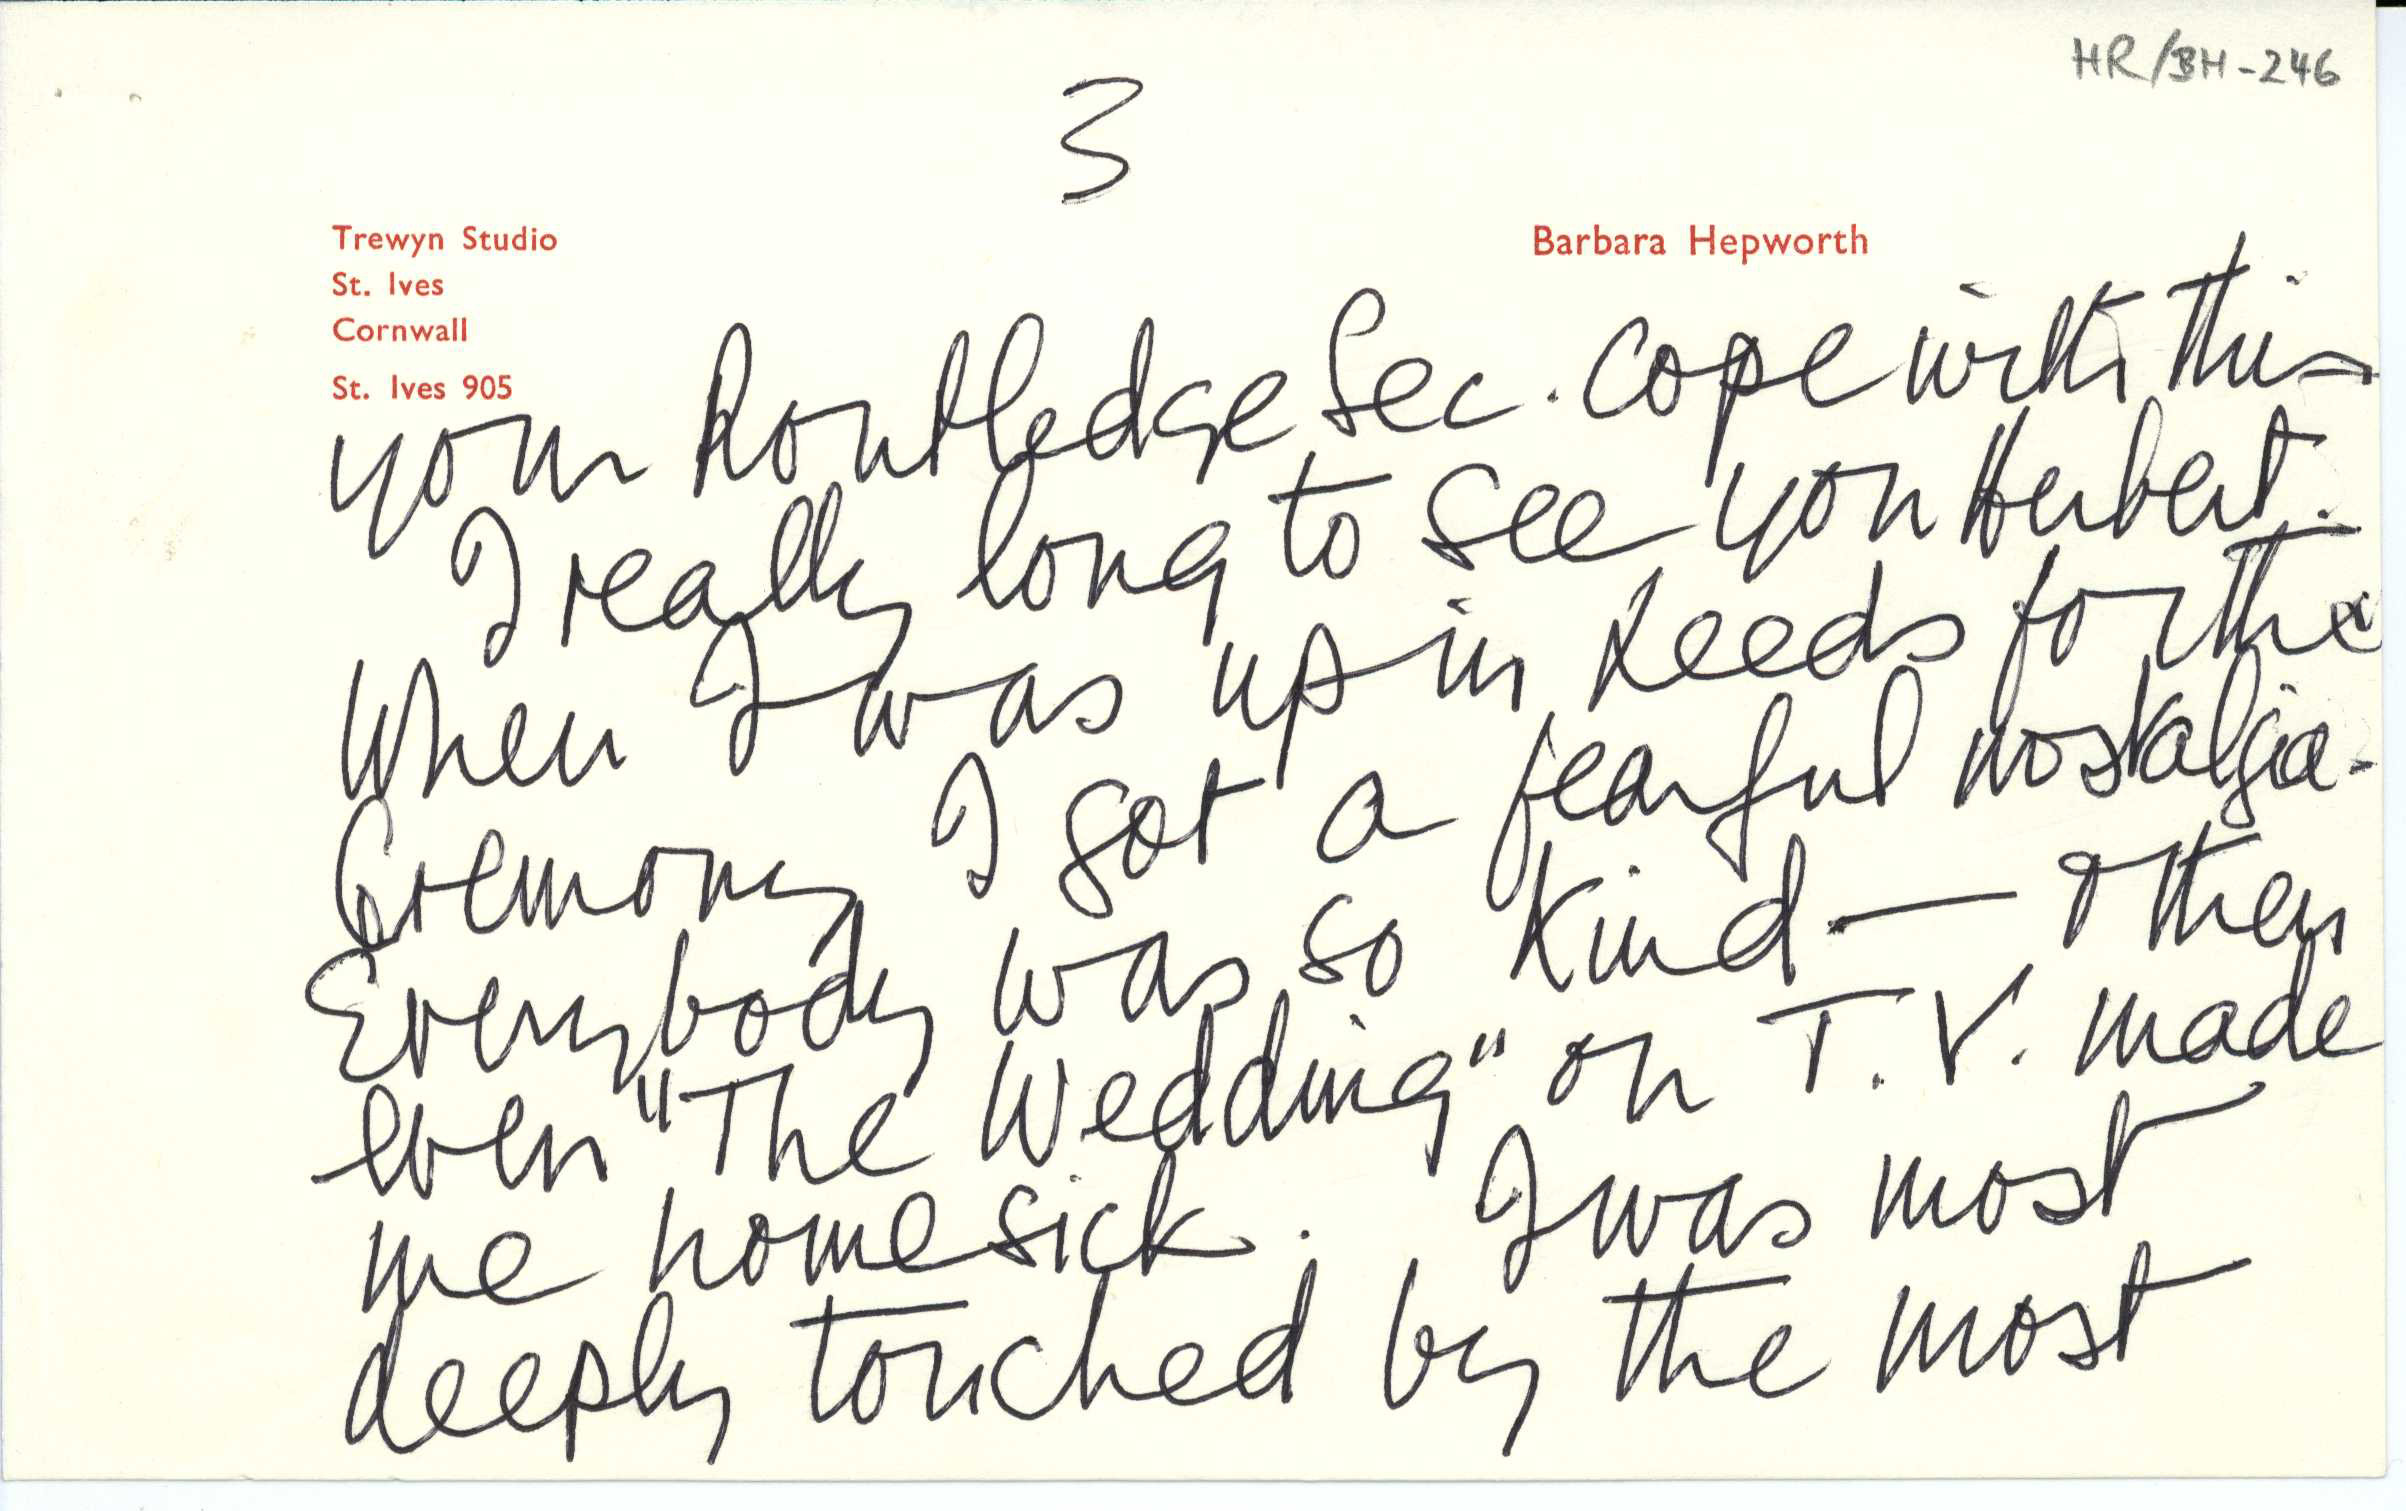 HR/BH-246
3
Trewyn Studio
St. Ives
Cornwall
St. Ives 905
Barbara Hepworth
your Routledge Sec. cope with this
I really long to see you Herbert.
When I was up in Leeds for the
Ceremony I got a fearful nostalgia.
Everybody was so kind — & then
even "The Wedding" on T.V. made
me homesick. I was most
deeply touched by the most